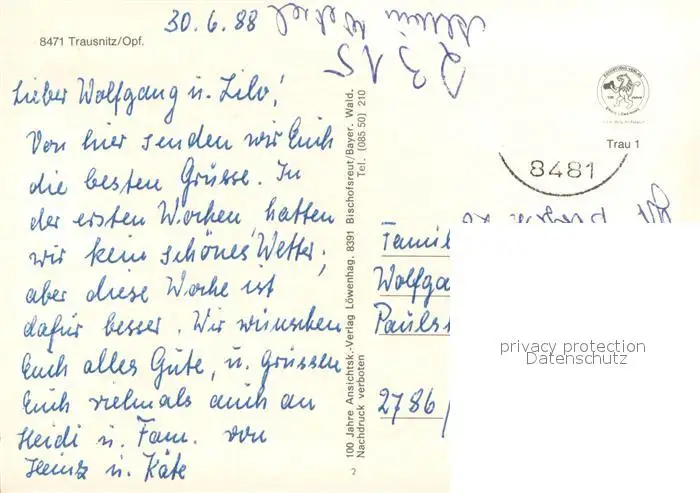 8471 Trausnitz/Opf.
30.6.88
2315
Lieber Wolfgang u. Lilo!
Von hier senden wir Euch
die besten Grüsse. In
der ersten Wochen hatten
wir kein schönes Wetter;
aber diese Woche ist
dafür besser. Wir wünschen
Euch alles Gute, u. grüssen
Euch vielmals auch an
Heidi u. Fam. von
Heinz u. Käte
100 Jahre Ansichtsk.-Verlag Löwenhag, 8391 Bischofsreut/Bayer. Wald.
Nachdruck verboten Tel. (085 50) 210
2
Trau 1
8481
Famil
Wolfga
Pauls
2786/
privacy protection
Datenschutz